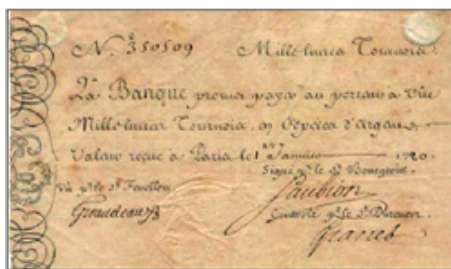 N. 350509 Mille livres Tournois.
La Banque promet payer au porteur à vüe
Mille livres Tournois, en Especes d'Argent,
valeur reçüe à Paris le 1er Janvier 1720.
Signé p.r le S.r Bourgeois.
Vû p.r le S.r Fenellon.
Giraudeau
Controlé p.r le S.r Durevest.
Granet